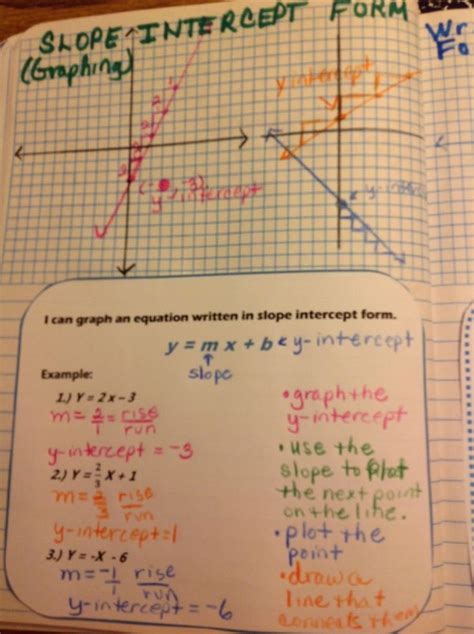 SLOPE INTERCEPT FORM
(Graphing)
Wr
Fo
y intercept
2
1
2
1
2
y intercept
I can graph an equation written in slope intercept form.
y = mx + b < y-intercept
↑
slope
Example:
1.) Y = 2x – 3
m = 2/1 = rise/run
y-intercept = -3
2.) Y = 2/3 X + 1
m = 2/3 rise/run
y-intercept=1
3.) Y = -X - 6
m = -1/1 rise/run
y-intercept = -6
• graph the
y-intercept
• use the
slope to plot
the next point
on the line.
• plot the
point
• draw a
line that
connects them